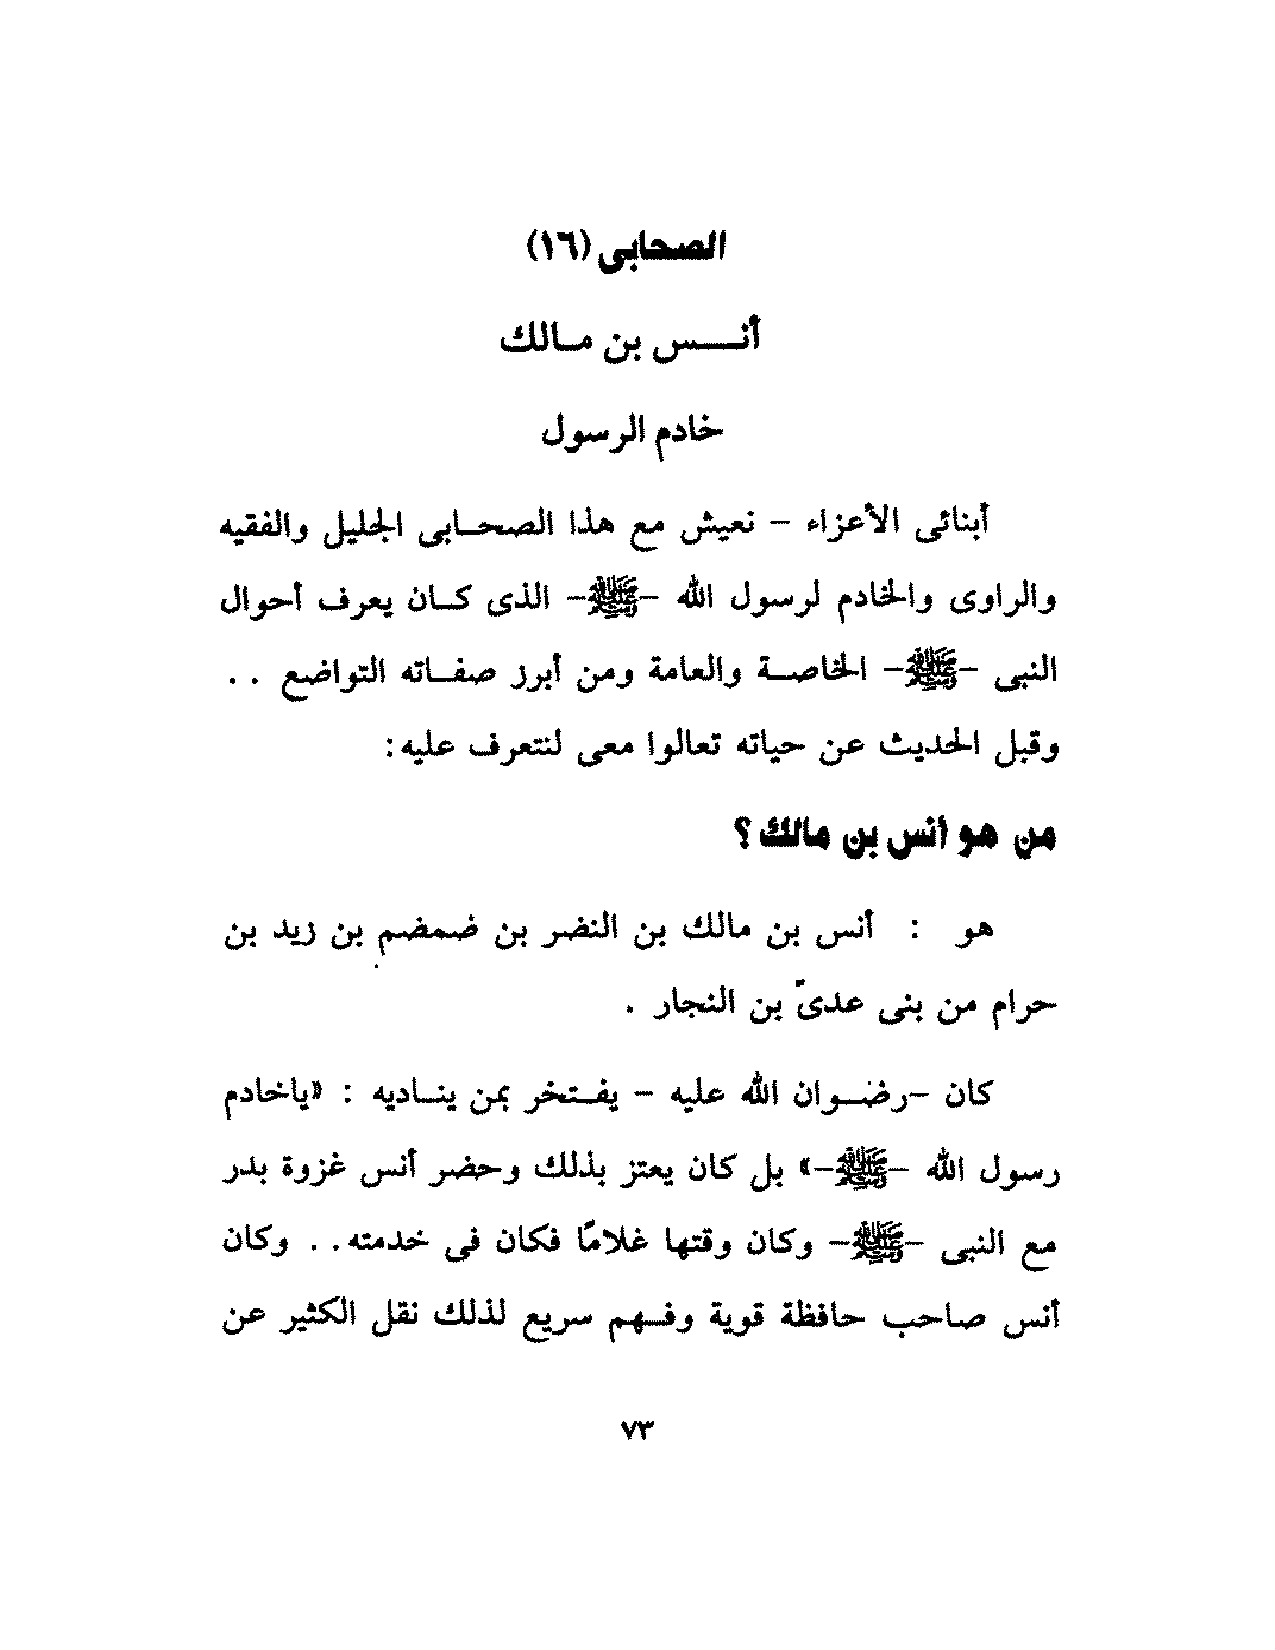 الصحابى (١٦)
أنس بن مالك
خادم الرسول
أبنائى الأعزاء - نعيش مع هذا الصحابى الجليل والفقيه
والراوى والخادم لرسول الله -ﷺ- الذى كان يعرف أحوال
النبى -ﷺ- الخاصة والعامة ومن أبرز صفاته التواضع . .
وقبل الحديث عن حياته تعالوا معى لنتعرف عليه :
من هو أنس بن مالك ؟
هو : أنس بن مالك بن النضر بن ضمضم بن زيد بن
حرام من بنى عدىّ بن النجار .
كان -رضوان الله عليه - يفتخر بمن يناديه : «ياخادم
رسول الله -ﷺ-» بل كان يعتز بذلك وحضر أنس غزوة بدر
مع النبى -ﷺ- وكان وقتها غلامًا فكان فى خدمته . . وكان
أنس صاحب حافظة قوية وفهم سريع لذلك نقل الكثير عن
٧٣